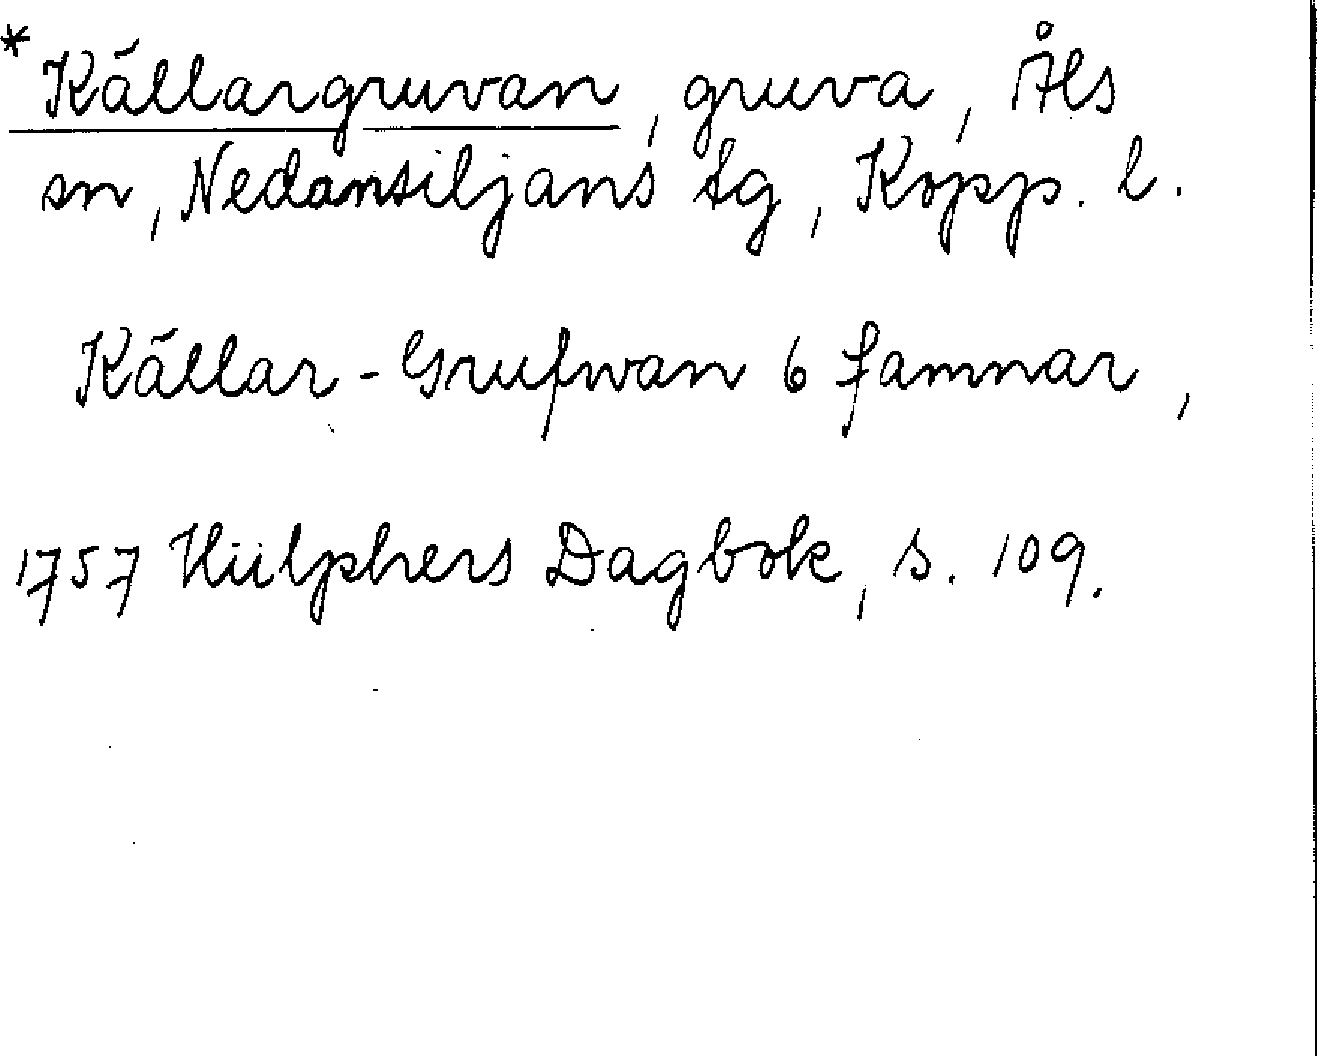 * Källargruvan, gruva, Åls
sn, Nedansiljans tg, Kopp. l.
Källar-Grufwan 6 famnar,
1757 Hülphers Dagbok, s. 109.